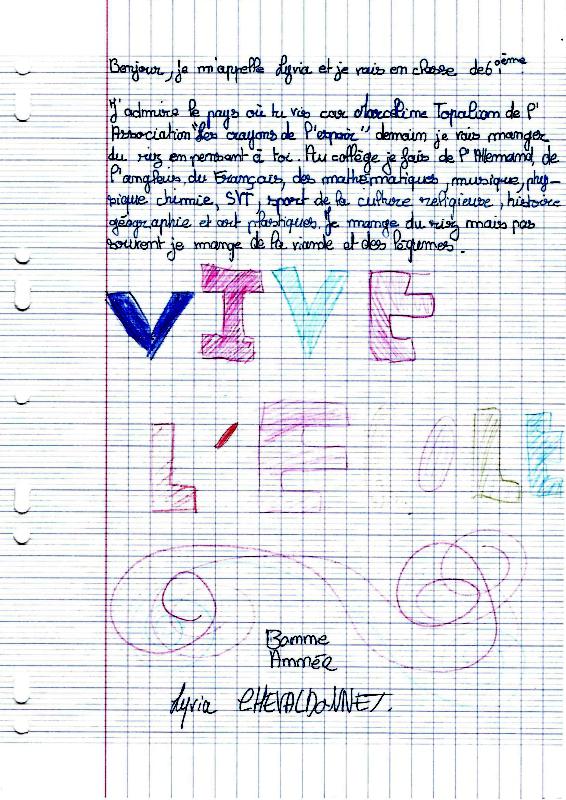 Bonjour, je m'appelle Lyria et je vais en classe de 6oième
J'admire le pays où tu vis car Marceline Topalian de l'
Association "Les crayons de l'espoir" demain je vais manger
du riz en pensant à toi. Au collège je fais de l'Allemand, de
l'anglais, du Français, des mathématiques, musique, phy-
sique chimie, SVT, sport de la culture religieuse, histoire
géographie et art plastiques. Je mange du riz mais pas
souvent je mange de la viande et des légumes.
VIVE
L'ECOLE
Bamme
Ammée
Lyria CHEVALDONNET.